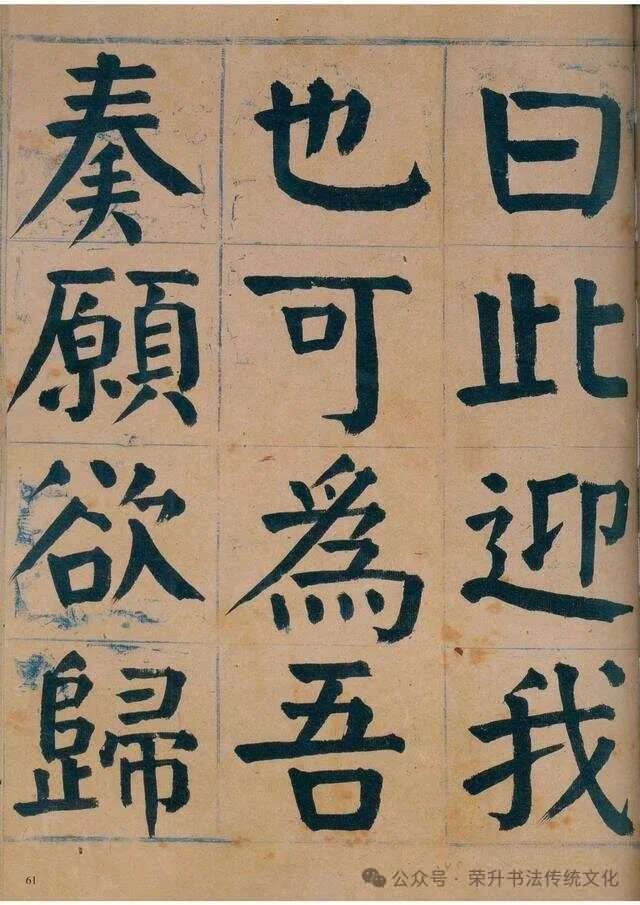 曰此迎我
也可為吾
奏願欲歸
61
公众号·荣升书法传统文化